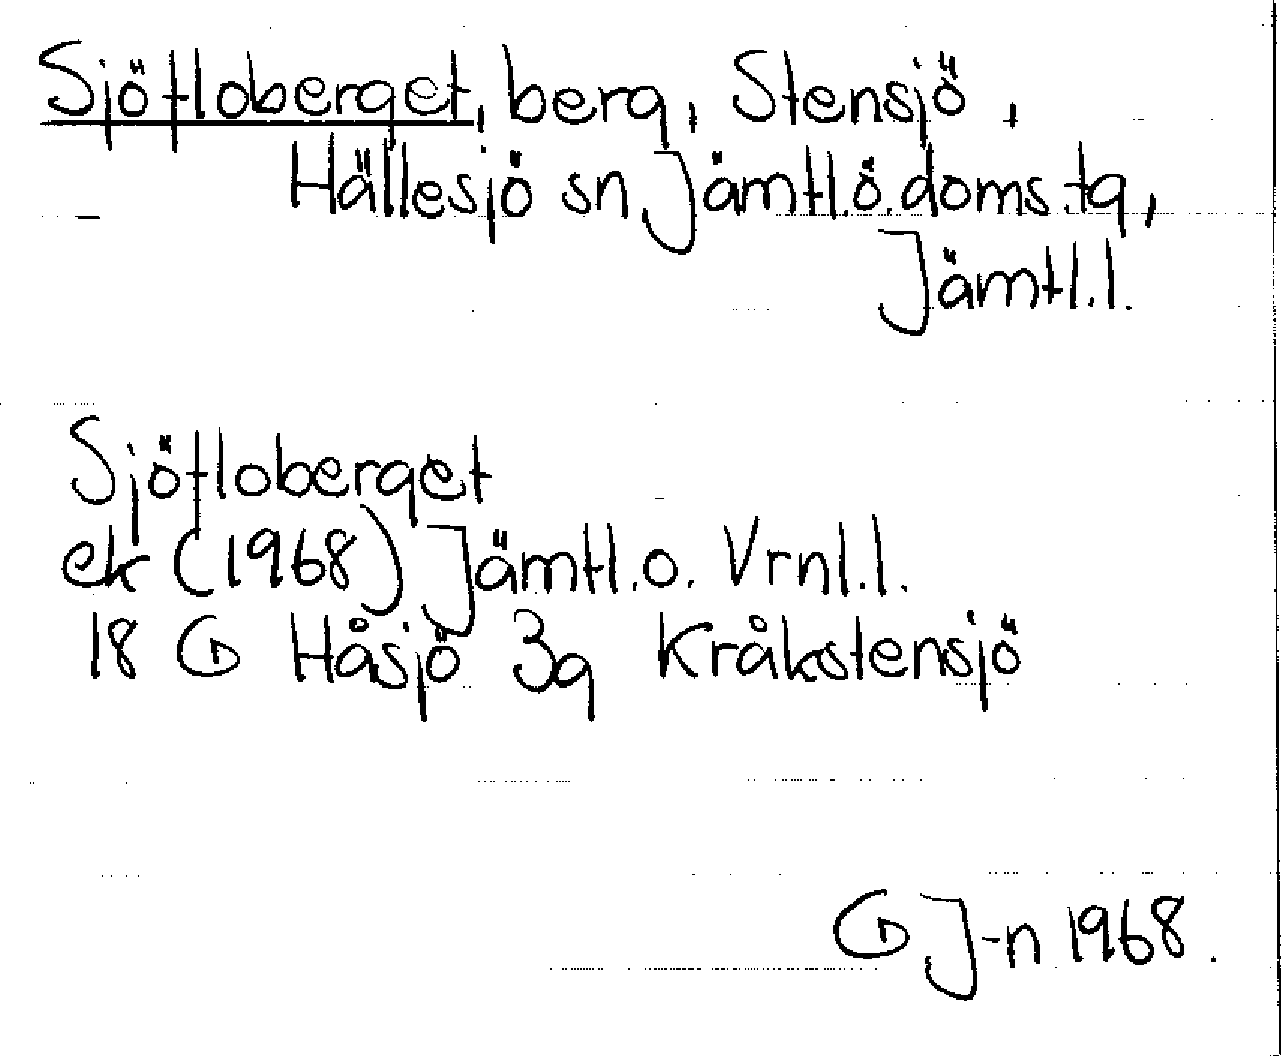 Sjöfloberget, berg, Stensjö,
Hällesjö sn, Jämtl.ö.doms.tg,
Jämtl.l.
Sjöfloberget
ek (1968) Jämtl.o. Vrnl.l.
18 G Håsjö 3g Kråkstensjö
G J-n 1968.